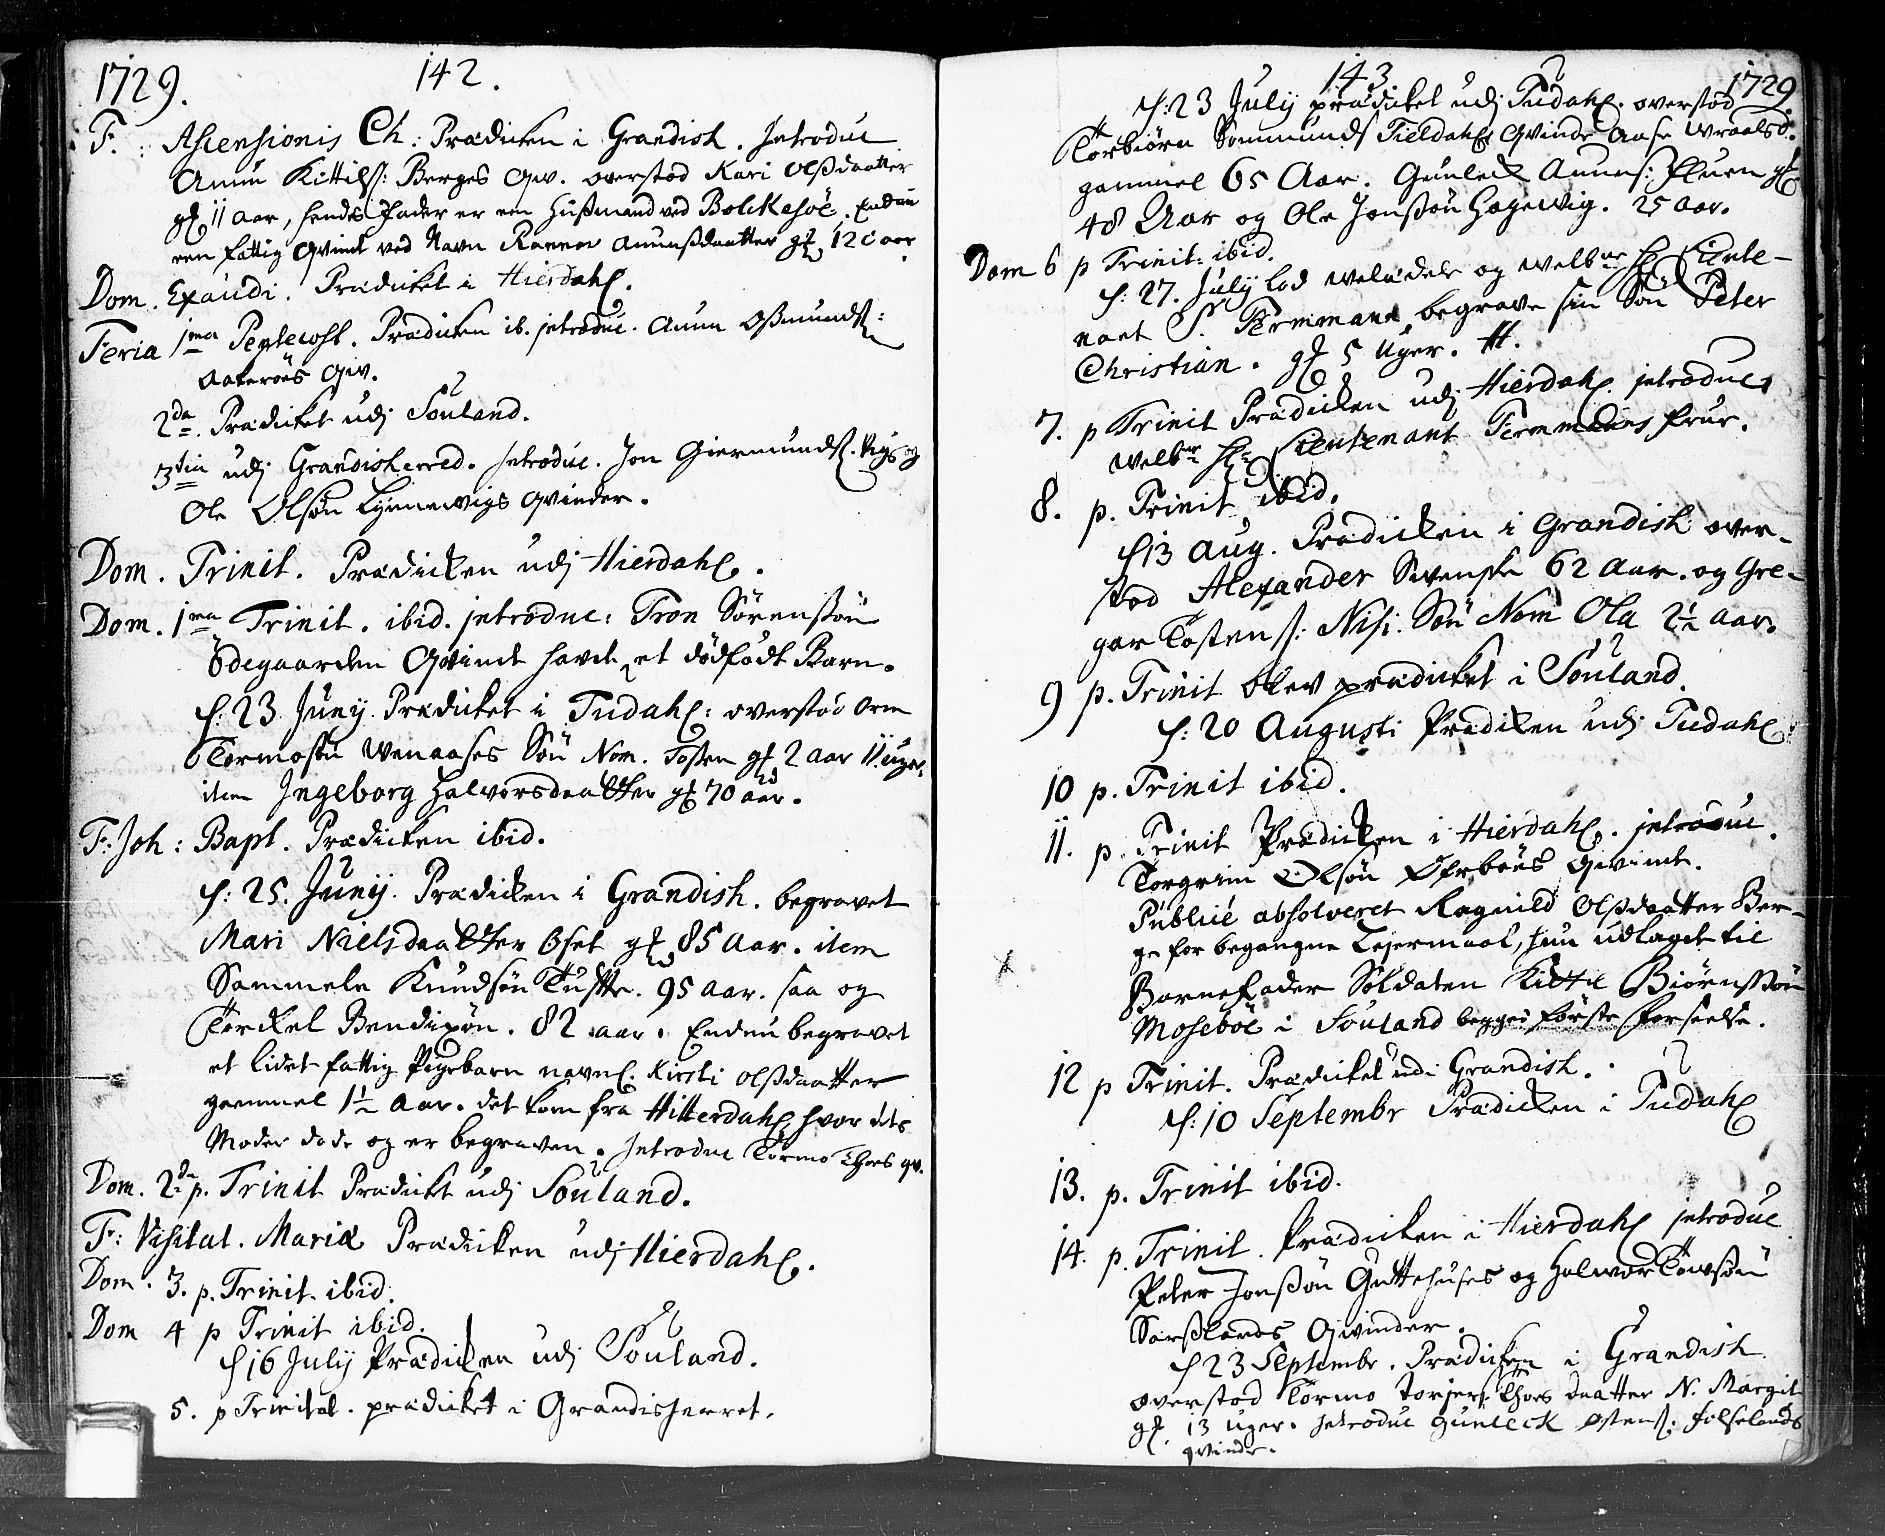 1729. 142.
F. : Ascensionis Ch: Prædicken i Grandish. Introduc
Anun Kittilss: Berges Qv. overstod Kari Olssdaatter
gl 11 Aar, hendes Fader er een Hussmand ved Bolckesöe. Endnu
een fattig Qvinde ved Navn Anunssdaatter gl. aar.
Dom. Exaudi. Prædicket i Hierdahl.
Feria 1ma Pentecost. Prædicken ib. introduc. Anun Ossmunds:
Qv.
2da. Prædicket udj Souland.
3tia udj Grandisherred. Introduc. Jon Giermunds. og
Ole Olsøn Lijnnewigs qvinder.
Dom. Trinit. Prædicken udj Hierdahl.
Dom. 1ma Trinit. ibid. introduc: Tron Sörenssøn
Ödegaarden Qvinde havde et dödfödt Barn.
d: 23 Junij Prædicket i Tudahl: overstod Orm
Tormossøn Wenaases Søn Nom. Tosten gl 2 aar 11 uger,
item Ingeborg Halvorsdaatter gl 70 aar.
F: Joh: Bapt. Prædicken ibid.
d: 25. Junij. Prædicken i Grandish. begravet
Mari Nielsdaatter Oset gl 85 Aar. item
Sammele Knudsøn Tufte. 95 aar. saa og
Torckel Bendixøn. 82 aar. Endnu begravet
et lidet fattig Pigebarn navnl. Kirsti Olssdaatter
gammel 1½ aar. det kom fra Hitterdahl hvor dets
Moder døde og er begraven. Introduc Tormo Thors qv.
Dom. 2da p. Trinit Prædicket udj Souland.
F: Visitat. Mariæ Prædicken udj Hierdahl.
Dom. 3. p. Trinit. ibid.
Dom 4 p Trinit ibid.
d 16 Julij Prædicken udj Souland.
5. p Trinitat. prædicket i Grandisherret.
143 1729
d: 23 Julij prædicket udj Tudahl. overstod
Torbiörn Sommunds Fieldahl Qvinde Aase Wraalsd.
gammel 65 Aar. Gunleck Anuns: gl
48 Aar og Ole Jonssøn Hagewig. 25 aar.
Dom 6 p Trinit: ibid.
d: 27. Julij lod welædele og welbne Hr Liute-
nant S. Temmann begrave sin Søn Peter
Christian. gl 5 Uger.
7. p Trinit Prædicken udj Hierdahl. introduc
welbr Hr Lieutenant Temmanns frue.
8. p. Trinit ibid.
d 13 Aug. Prædicken i Grandish over-
stod Alexander Swenske 62 Aar. og Gre-
gar Tostens: Nisi: Søn Nom Ola 2½ aar.
9 p. Trinit blev prædicket i Souland.
d: 20 Augusti Prædicken udj Tudahl
10 p. Trinit ibid.
11. p. Trinit Prædicken i Hierdahl. introduc.
Torgrim Olsøn Øfrböes Qvinde.
Publicè absolveret Ragnild Olssdaatter Ber-
ge for begangne Lejermaal, hun udlagde til
Barnefader Soldaten Kittil Biörnssøn
Moseböe i Souland begges första forseelse.
12 p Trinit. Prædicket udi Grandish.
d: 10 Septembr Prædicken i Tudahl
13. p. Trinit ibid.
14. p. Trinit. Prædicken i Hierdahl introduc
Peter Jonssøn Guttehuses og Halvor Tovssøn
Sørsslands Qvinder.
d 23 Septembr. Prædicken i Grandish
overstod Tormo Torjers: Thors Daatter N. Margit
gl. 13 uger. introduc Gunleck Ostens:
qvinde.